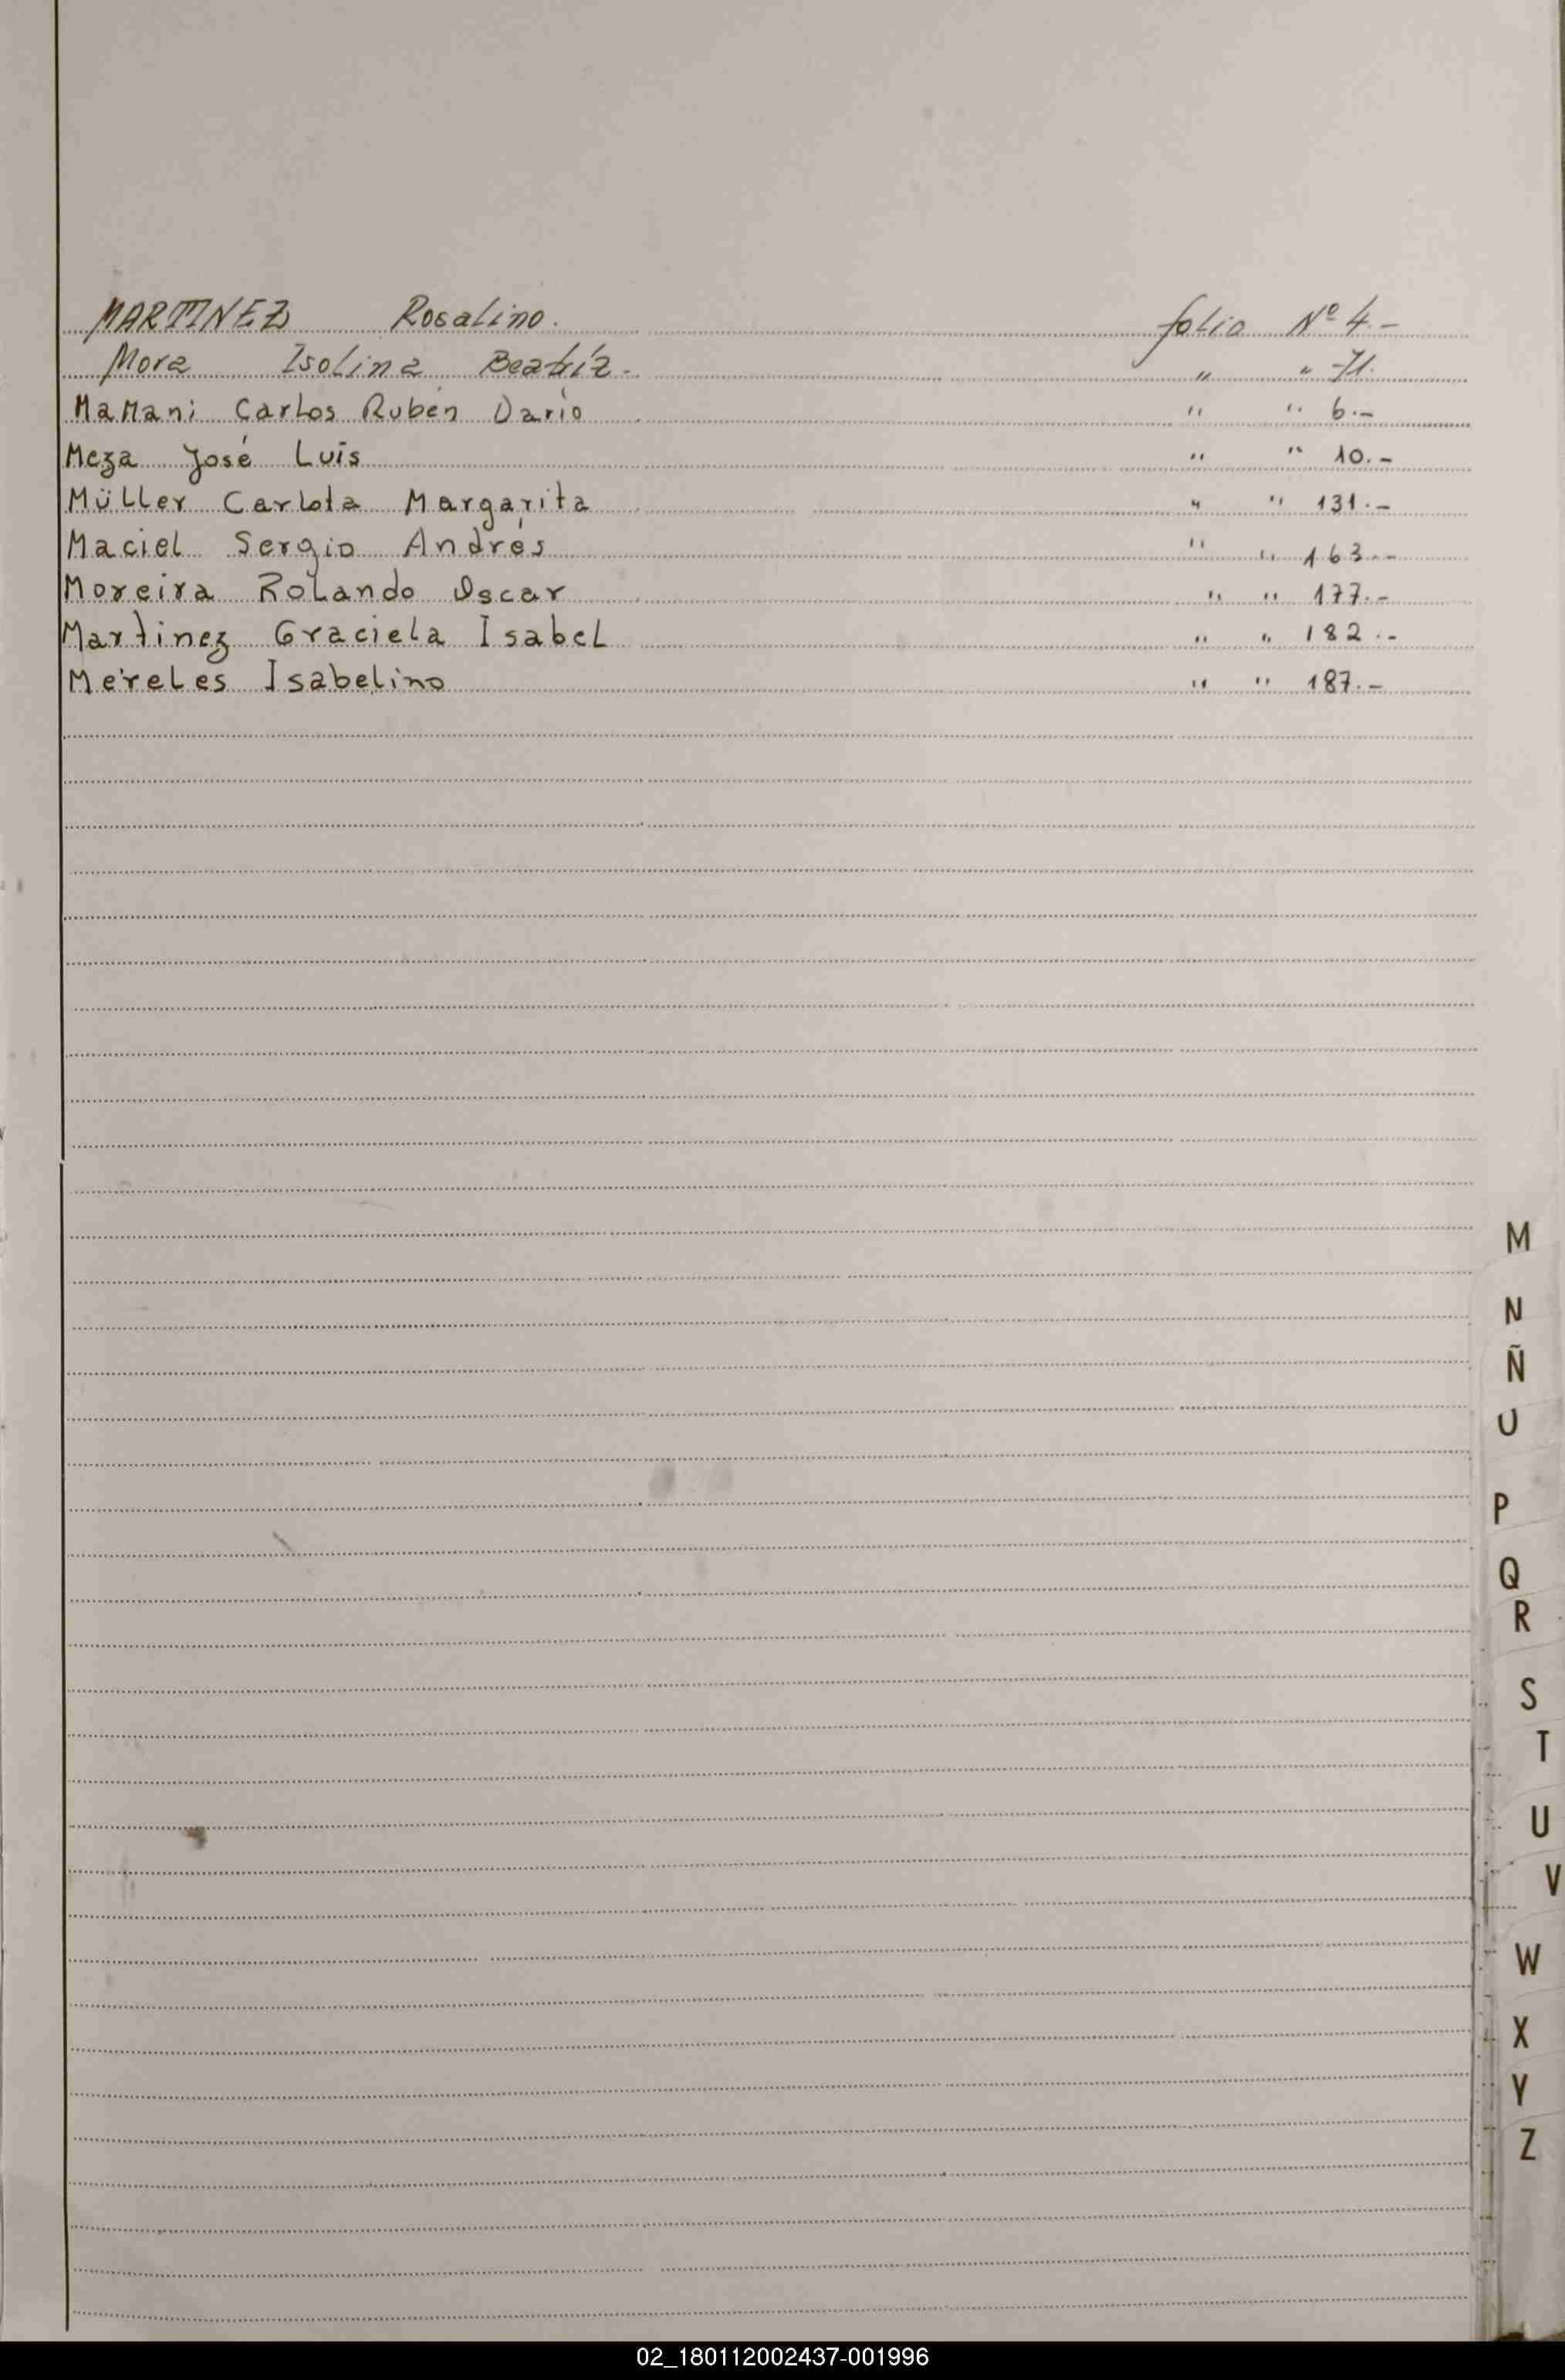 MARTINEZ Rosalino. folio Nº 4.-
Mora Isolina Beatríz.- " " 71.
MaMani Carlos Rubén Darío " " 6.-
Meza José Luís " " 10.-
Müller Carlota Margarita " " 131.-
Maciel Sergio Andrés " " 163.-
Moreira Rolando Oscar " " 177.-
Martínez Graciela Isabel " " 182.-
Mereles Isabelino " " 187.-
M
N
Ñ
O
P
Q
R
S
T
U
V
W
X
Y
Z
02_180112002437-001996